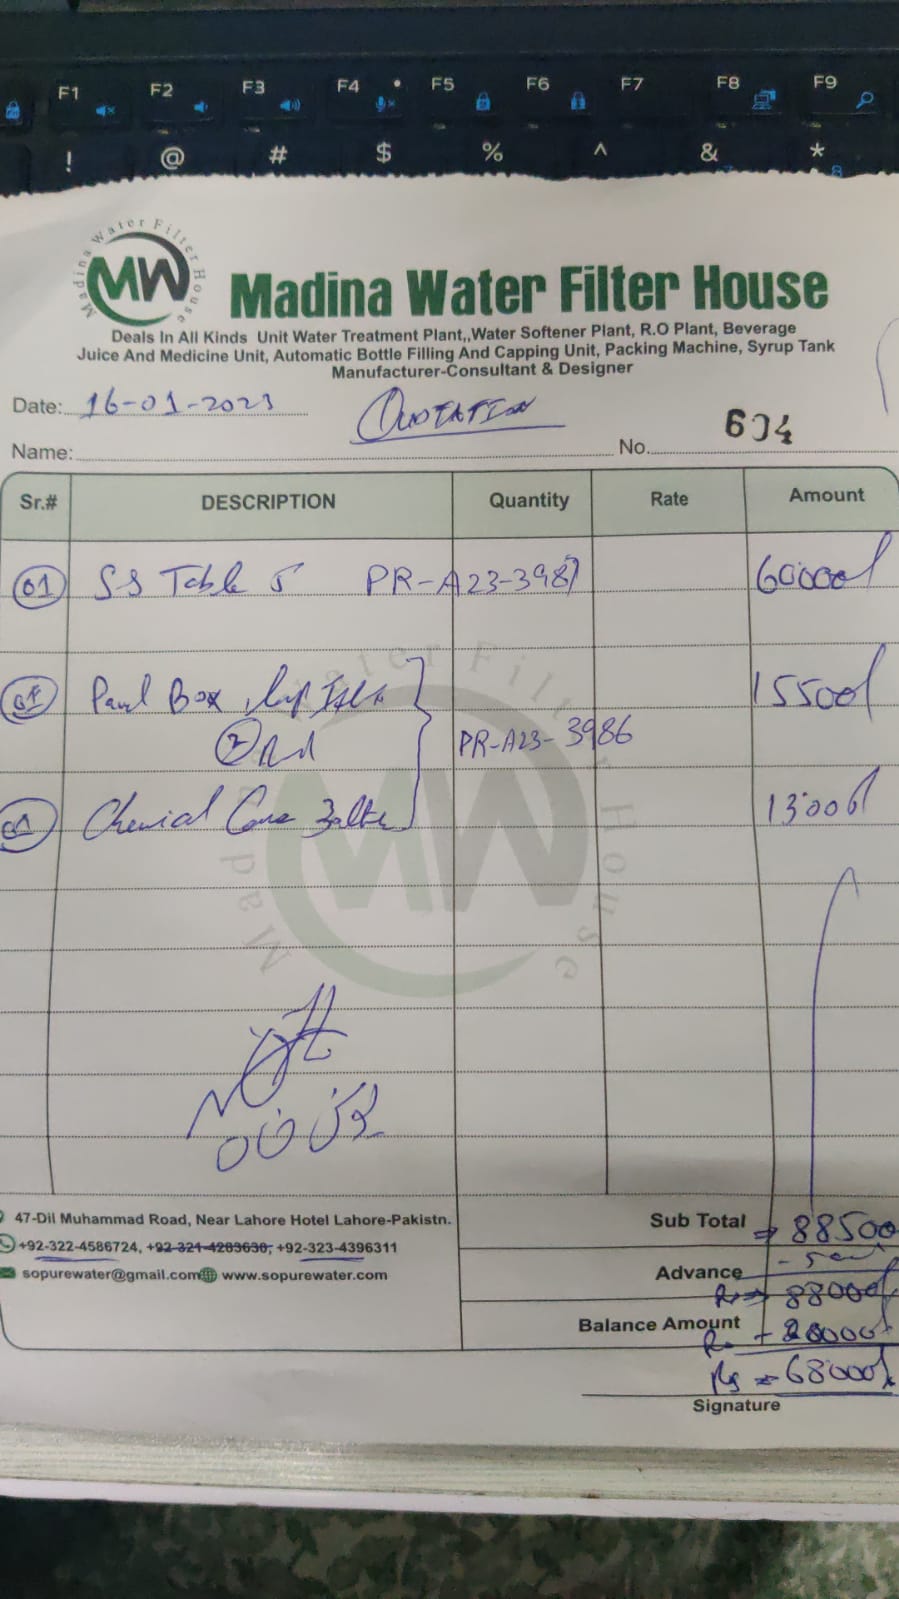 F1 F2 F3 F4 F5 F6 F7 F8 F9
! @ # $ % ^ & * 8
Madina Water Filter House
MW Madina Water Filter House
Deals In All Kinds Unit Water Treatment Plant,,Water Softener Plant, R.O Plant, Beverage
Juice And Medicine Unit, Automatic Bottle Filling And Capping Unit, Packing Machine, Syrup Tank
Manufacturer-Consultant & Designer
Date: 16-01-2023 QUOTATION
Name: No. 604
Sr.# DESCRIPTION Quantity Rate Amount
01 SS Table PR-A23-3987 60000/
Panel Box 15500/
2 PR-A23-3986
01 Chemical 13000/
MW
Madina Water Filter House
47-Dil Muhammad Road, Near Lahore Hotel Lahore-Pakistn.
+92-322-4586724, +92-321-4283630, +92-323-4396311
sopurewater@gmail.com www.sopurewater.com
Sub Total 88500
Advance - 500/
Rs 88000/
Balance Amount
Rs - 20000/
Rs = 68000/
Signature